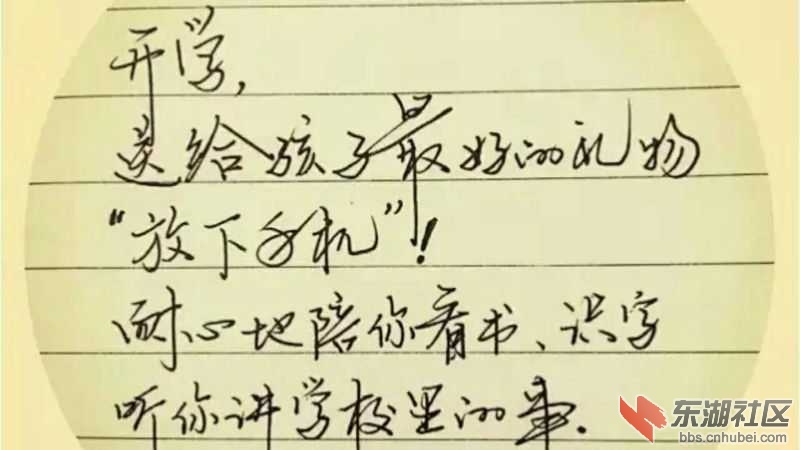 开学,
送给孩子最好的礼物
“放下手机”!
耐心地陪你看书、识字
听你讲学校里的事.
东湖社区
bbs.cnhubei.com